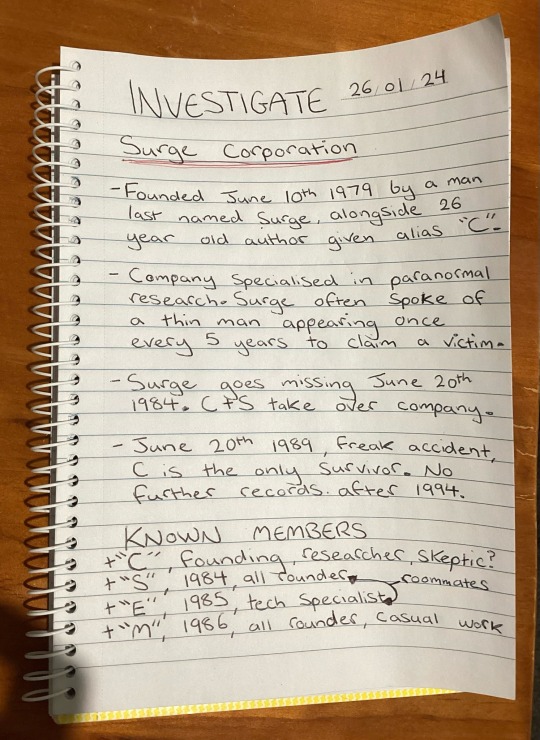 INVESTIGATE 26/01/24
Surge Corporation
- Founded June 10th 1979 by a man
last named Surge, alongside 26
year old author given alias "C".
- Company Specialised in paranormal
research. Surge often spoke of
a thin man appearing once
every 5 years to claim a victim.
- Surge goes missing June 20th
1984. C+S take over company.
- June 20th 1989, freak accident,
C is the only survivor. No
further records. after 1994.
KNOWN MEMBERS
+"C", founding, researcher, skeptic?
+"S", 1984, all rounder
roommates
+"E", 1985, tech Specialist
+"M", 1986, all rounder, casual work